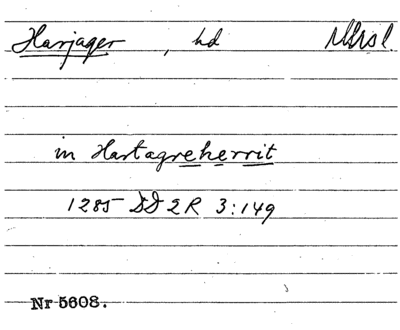 Harjager, hd
in Hartagreherrit
1285 DD 2R 3:149
Nr 5608.